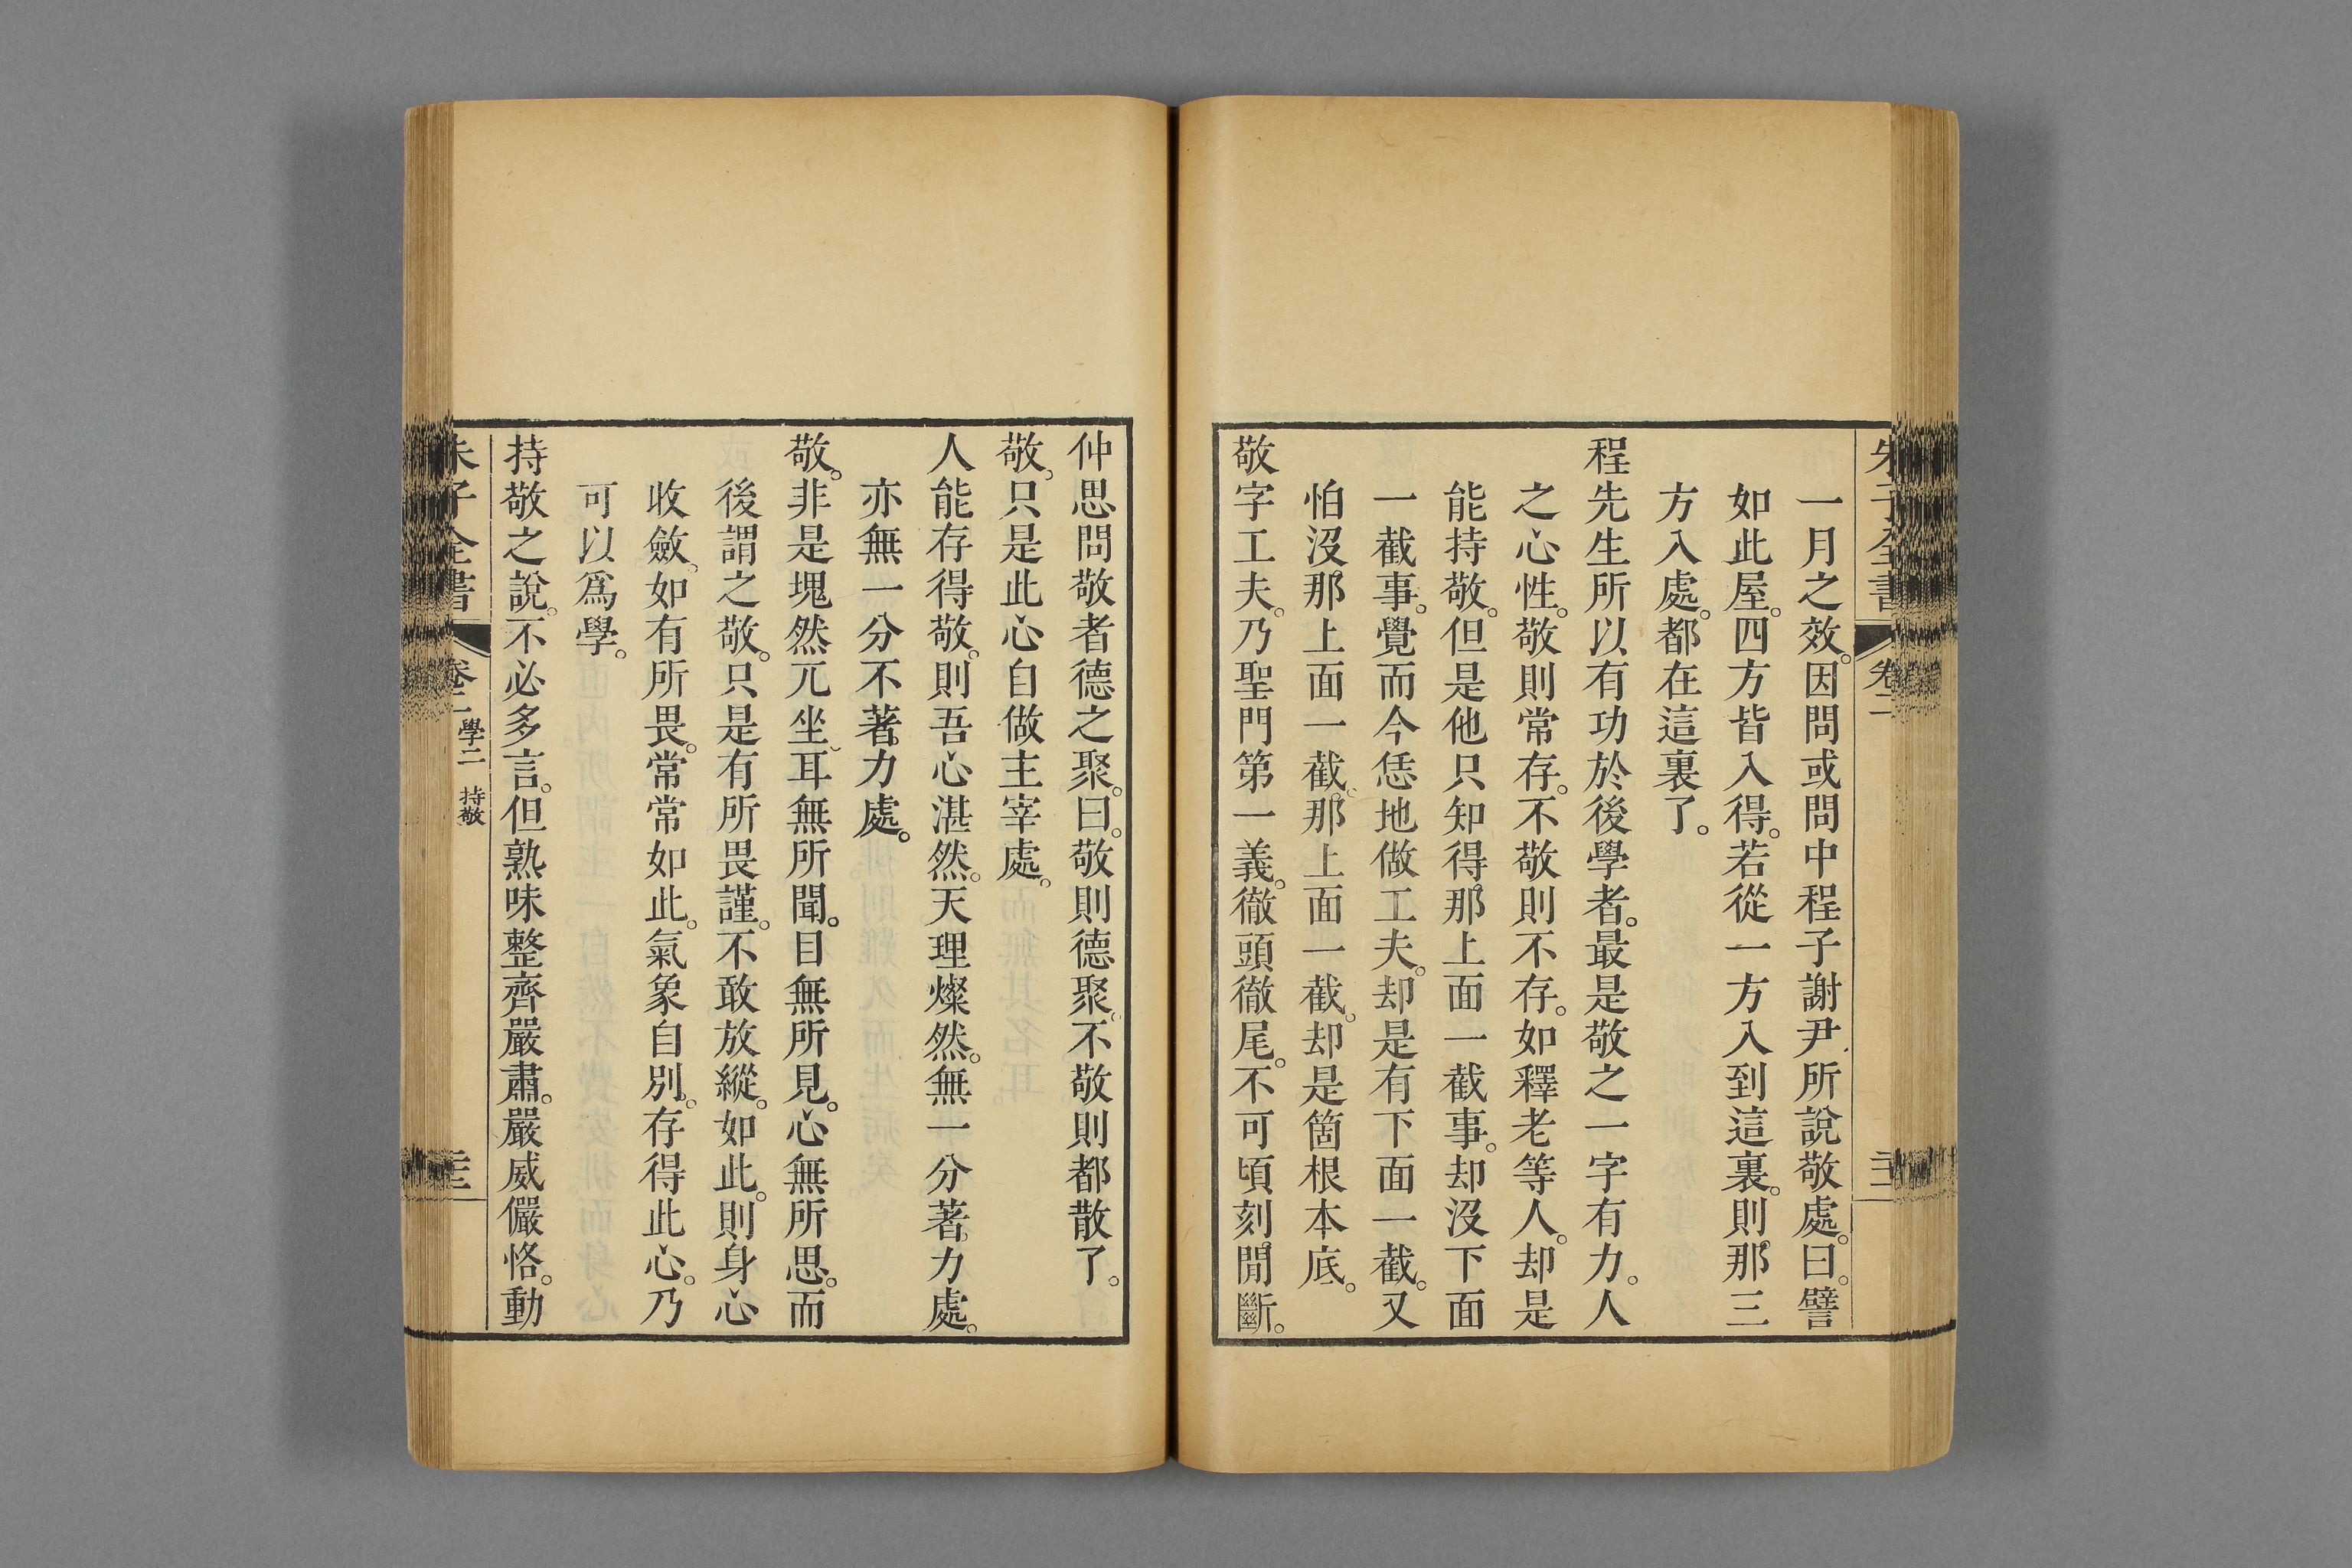 朱子全書 卷二 二十二
一月之效。因問或問中程子謝尹所說敬處。曰。譬
如此屋。四方皆入得。若從一方入到這裏。則那三
方入處。都在這裏了。
程先生所以有功於後學者。最是敬之一字有力。人
之心性。敬則常存。不敬則不存。如釋老等人。却是
能持敬。但是他只知得那上面一截事。却沒下面
一截事。覺而今恁地做工夫。却是有下面一截。又
怕沒那上面一截。那上面一截。却是箇根本底。
敬字工夫。乃聖門第一義。徹頭徹尾。不可頃刻閒斷。
仲思問敬者德之聚。曰。敬則德聚。不敬則都散了。
敬。只是此心自做主宰處。
人能存得敬。則吾心湛然。天理燦然。無一分著力處。
亦無一分不著力處。
敬。非是塊然兀坐。耳無所聞。目無所見。心無所思。而
後謂之敬。只是有所畏謹。不敢放縱。如此。則身心
收斂。如有所畏。常常如此。氣象自別。存得此心。乃
可以爲學。
持敬之說。不必多言。但熟味整齊嚴肅。嚴威儼恪。動
朱子全書 卷二 學二 持敬